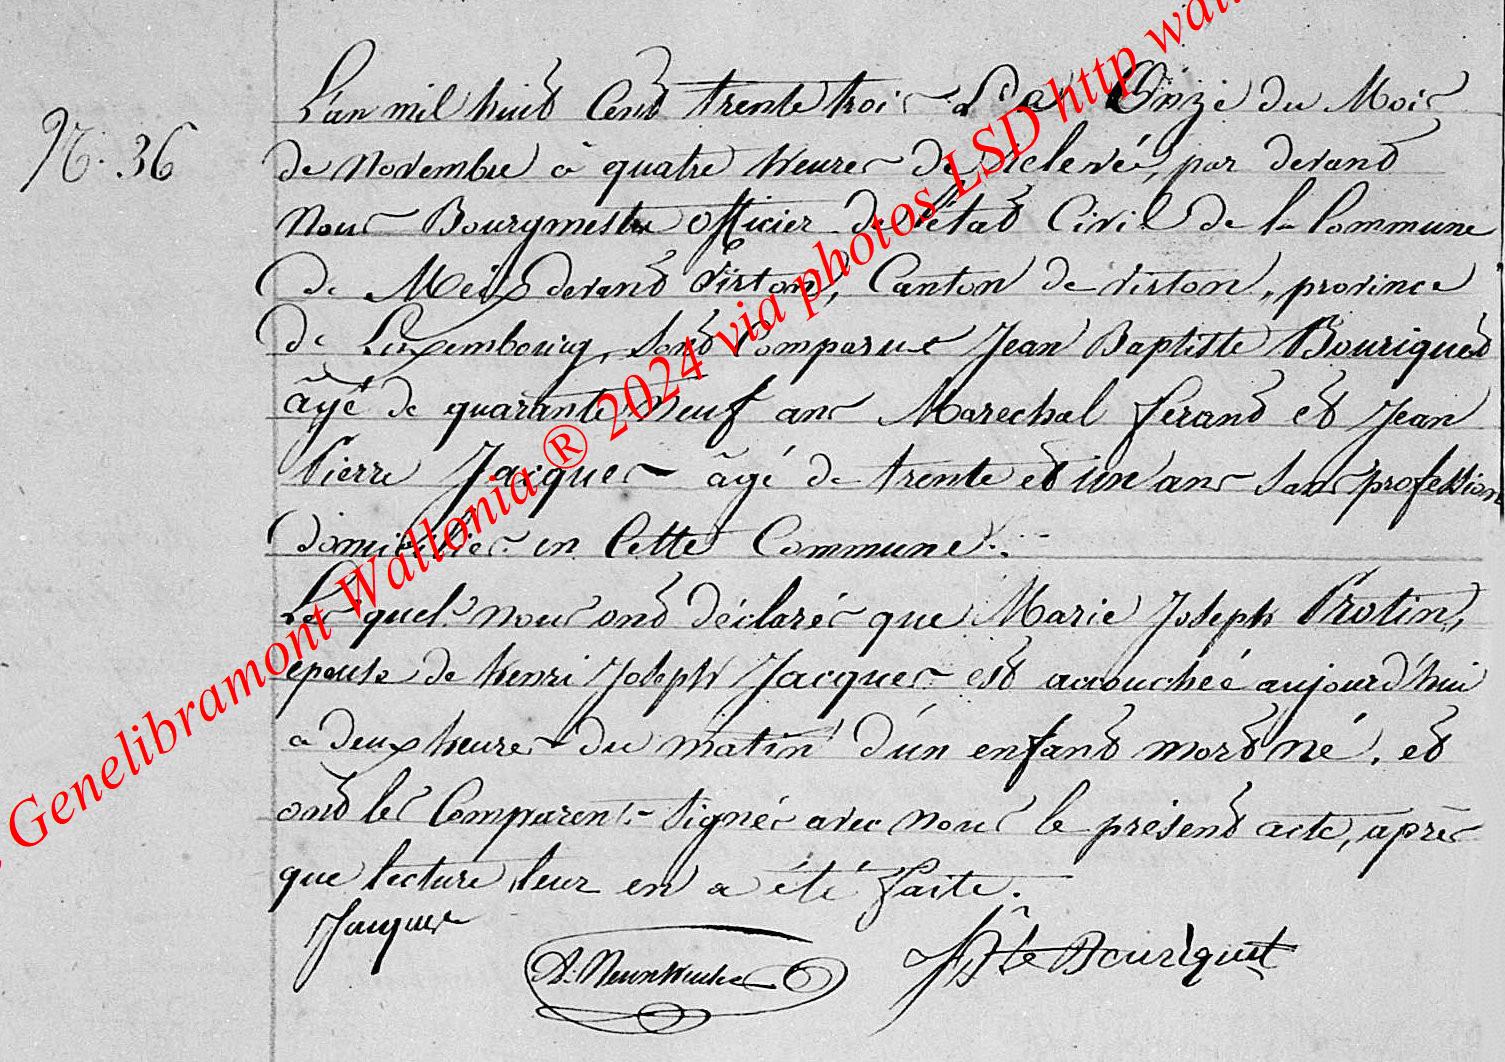 N.° 36
L'an mil huit Cent trente trois Le Onze du Mois
de Novembre à quatre heures de relevé, par devant
Nous Bourgmestre officier de l'état Civil de la Commune
de Meix devant Virton, Canton de Virton, province
de Luxembourg, sont Comparus Jean Baptiste Bouriquet
âgé de quarante Neuf ans Marechal ferant et Jean
Pierre Jacques âgé de trente et un ans sans profession
domiciliés en Cette Commune.
Lesquels nous ont déclarés que Marie Joseph Protin,
epouse de henri Joseph Jacques est accouchée aujourd'hui
a deux heures du matin d'un enfant mort né. et
ont les Comparents signés avec nous le présent acte, après
que lecture leur en a été faite.
Jacques
JBte Bouriquet
Genelibramont Wallonia ® 2024 via photos LSD http wal